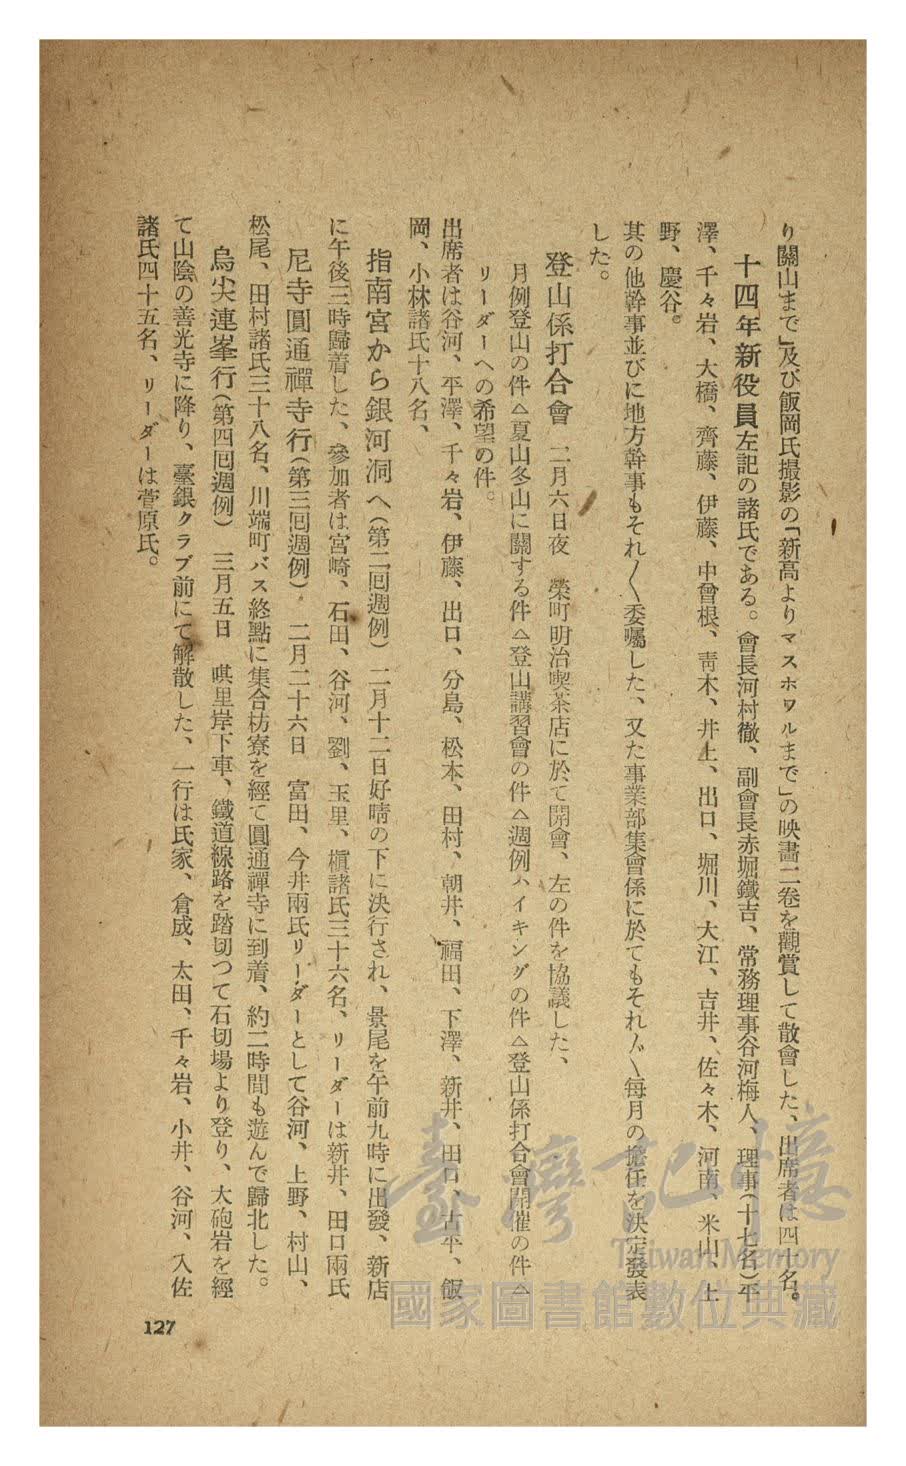 り關山まで」及び飯岡氏撮影の「新高よりマスホワルまで」の映畵二卷を觀賞して散會した、出席者は四十名。
十四年新役員左記の諸氏である。會長河村徹、副會長赤堀鐵吉、常務理事谷河梅人、理事(十七名)平
澤、千々岩、大橋、齊藤、伊藤、中曾根、靑木、井上、出口、堀川、大江、吉井、佐々木、河南、米山、上
野、慶谷。
其の他幹事並びに地方幹事もそれ〴〵委囑した、又た事業部集會係に於てもそれ〴〵每月の擔任を決定發表
した。
登山係打合會　二月六日夜　榮町明治喫茶店に於て開會、左の件を協議した、
月例登山の件△夏山冬山に關する件△登山講習會の件△週例ハイキングの件△登山係打合會開催の件△
リーダーへの希望の件。
出席者は谷河、平澤、千々岩、伊藤、出口、分島、松本、田村、朝井、福田、下澤、新井、田口、古平、飯
岡、小林諸氏十八名、
指南宮から銀河洞へ(第二回週例)　二月十二日好晴の下に決行され、景尾を午前九時に出發、新店
に午後三時歸着した、參加者は宮崎、石田、谷河、劉、玉里、槇諸氏三十六名、リーダーは新井、田口兩氏
尼寺圓通禪寺行(第三回週例)　二月二十六日　富田、今井兩氏リーダーとして谷河、上野、村山、
松尾、田村諸氏三十八名、川端町バス終點に集合枋寮を經て圓通禪寺に到着、約二時間も遊んで歸北した。
烏尖連峯行(第四回週例)　三月五日　唭里岸下車、鐵道線路を踏切つて石切場より登り、大砲岩を經
て山陰の善光寺に降り、臺銀クラブ前にて解散した、一行は氏家、倉成、太田、千々岩、小井、谷河、入佐
諸氏四十五名、リーダーは菅原氏。
127
臺灣記憶
Taiwan Memory
國家圖書館數位典藏